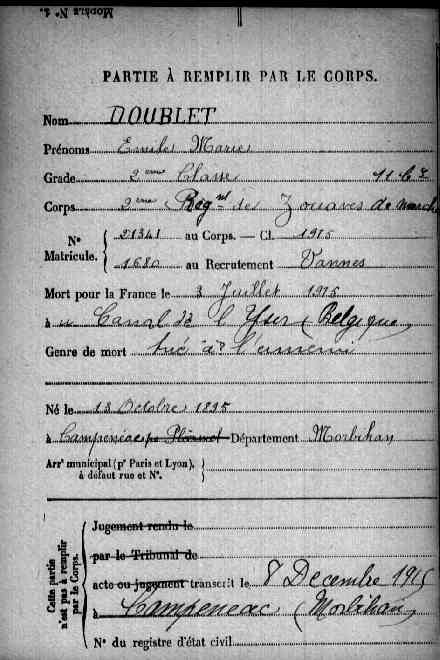 Modèle N° 1.
PARTIE À REMPLIR PAR LE CORPS.
Nom DOUBLET
Prénoms Emile Marie
Grade 2ème Classe
Corps 2ème Régnt de Zouaves de marche
N° Matricule. { 21341 au Corps. — Cl. 1915
1680 au Recrutement Vannes
Mort pour la France le 3 Juillet 1915
à Canal de l'Yser (Belgique)
Genre de mort tué à l'ennemi
Né le 13 Octobre 1895
à Campénéac Ploërmel Département Morbihan
Arrt municipal (pr Paris et Lyon),
à défaut rue et N°.
Cette partie n'est pas à remplir par le Corps.
Jugement rendu le
par le Tribunal de
acte ou jugement transcrit le 8 Decembre 1915
à Campeneac (Morbihan)
N° du registre d'état civil